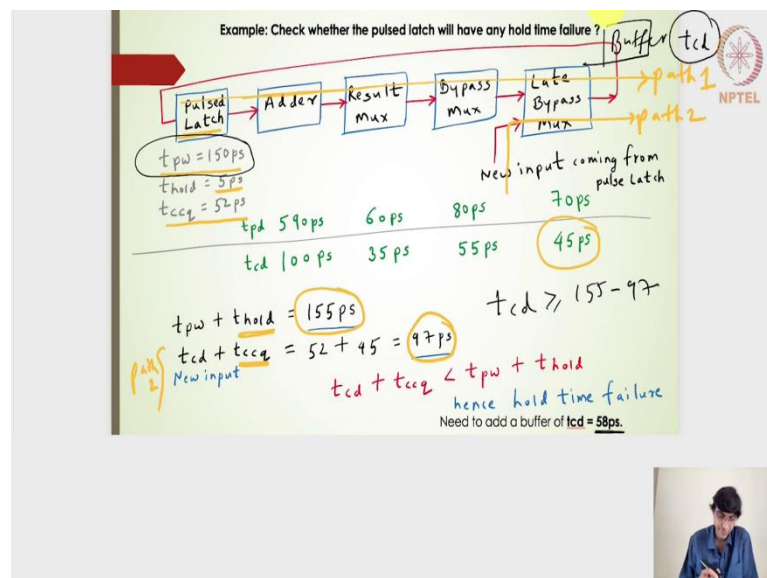 Example: Check whether the pulsed latch will have any hold time failure ?
Buffer tcd
NPTEL
Pulsed Latch
Adder
Result Mux
Bypass Mux
Late Bypass Mux
path1
path2
tpw = 150ps
thold = 5ps
tccq = 52ps
New input coming from
pulse Latch
tpd 590ps 60ps 80ps 70ps
tcd 100ps 35ps 55ps 45ps
tpw + thold = 155ps
tcd ≥ 155-97
path 2
tcd + tccq = 52 + 45 = 97ps
New input
tcd + tccq < tpw + thold
hence hold time failure
Need to add a buffer of tcd = 58ps.